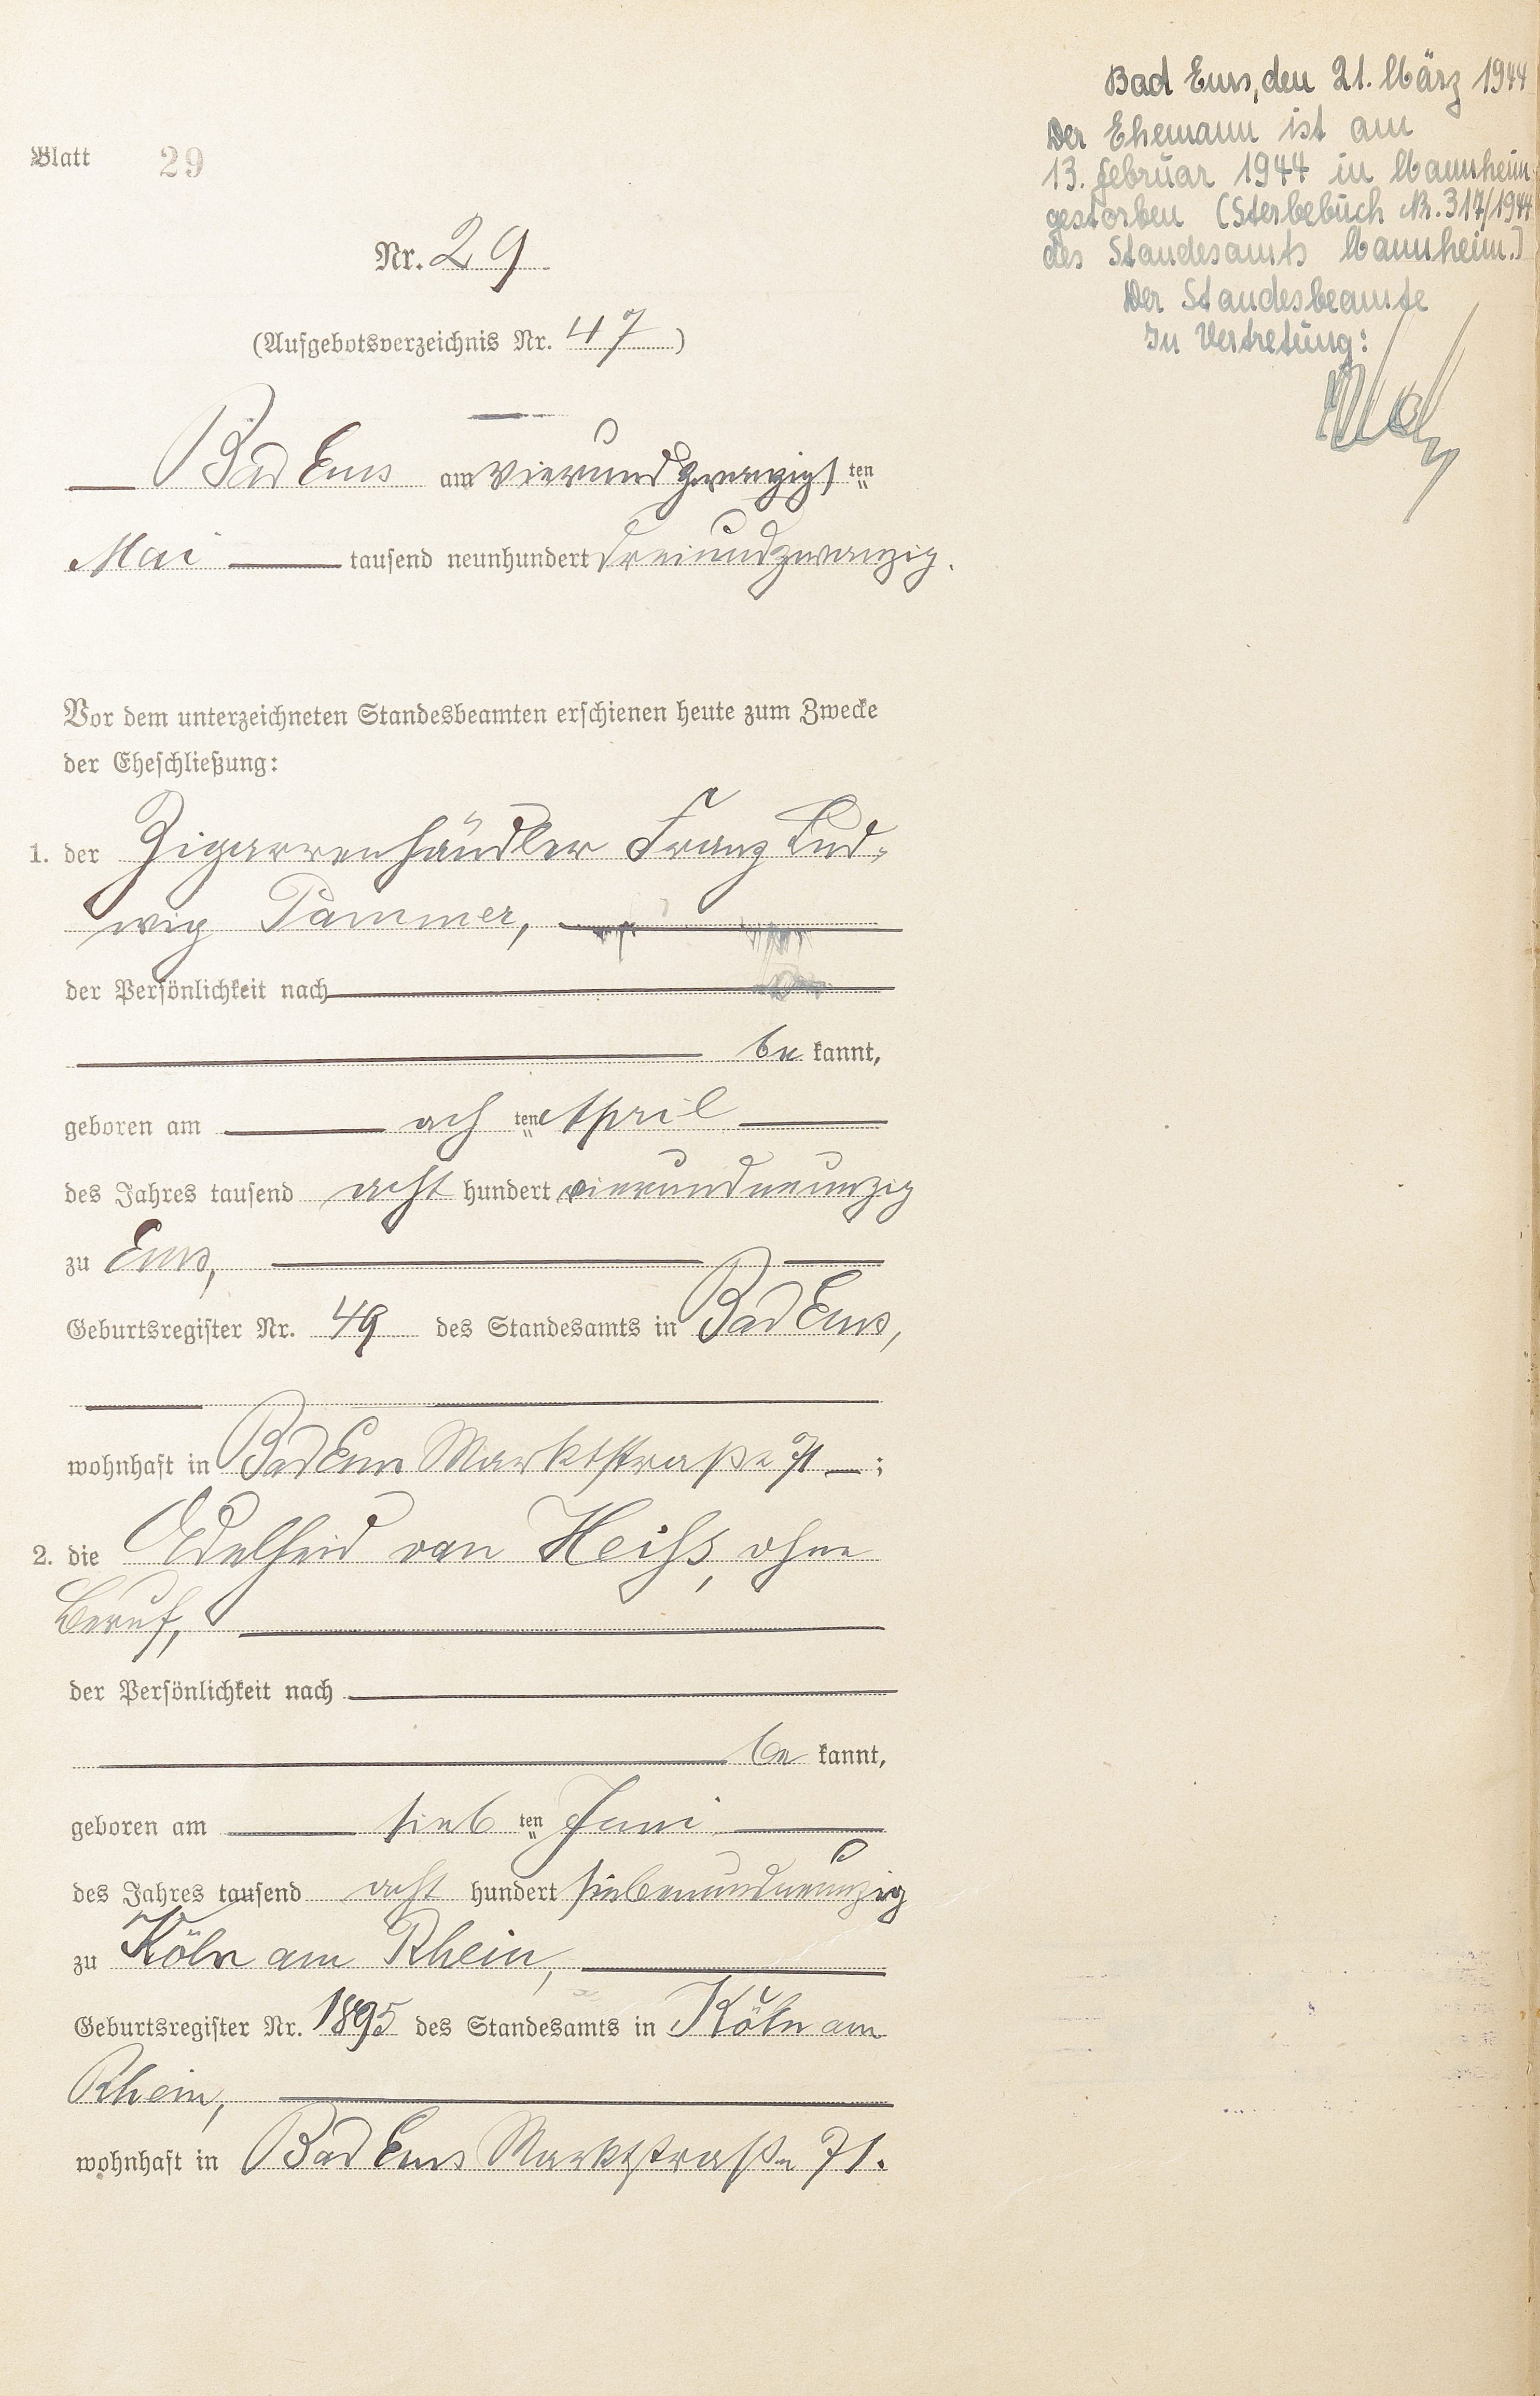 Blatt 29
Nr. 29
(Aufgebotsverzeichnis Nr. 47)
Bad Ems am vierundzwanzigsten
Mai tausend neunhundert dreiundzwanzig.
Vor dem unterzeichneten Standesbeamten erschienen heute zum Zwecke
der Eheschließung:
1. der Zigarrenhändler Franz Lud-
wig Pammer,
der Persönlichkeit nach
be kannt,
geboren am ach ten April
des Jahres tausend acht hundert vierundneunzig
zu Ems,
Geburtsregister Nr. 49 des Standesamts in Bad Ems,
wohnhaft in Bad Ems Marktstraße 71;
2. die Adelheid van Heiß, ohne
Beruf,
der Persönlichkeit nach
be kannt,
geboren am sieb ten Juni
des Jahres tausend acht hundert siebenundneunzig
zu Köln am Rhein,
Geburtsregister Nr. 1895 des Standesamts in Köln am
Rhein,
wohnhaft in Bad Ems Marktstraße 71.
Bad Ems, den 21. März 1944
Der Ehemann ist am
13. Februar 1944 in Mannheim
gestorben (Sterbebuch Nr. 317/1944
des Standesamts Mannheim.)
Der Standesbeamte
In Vertretung: